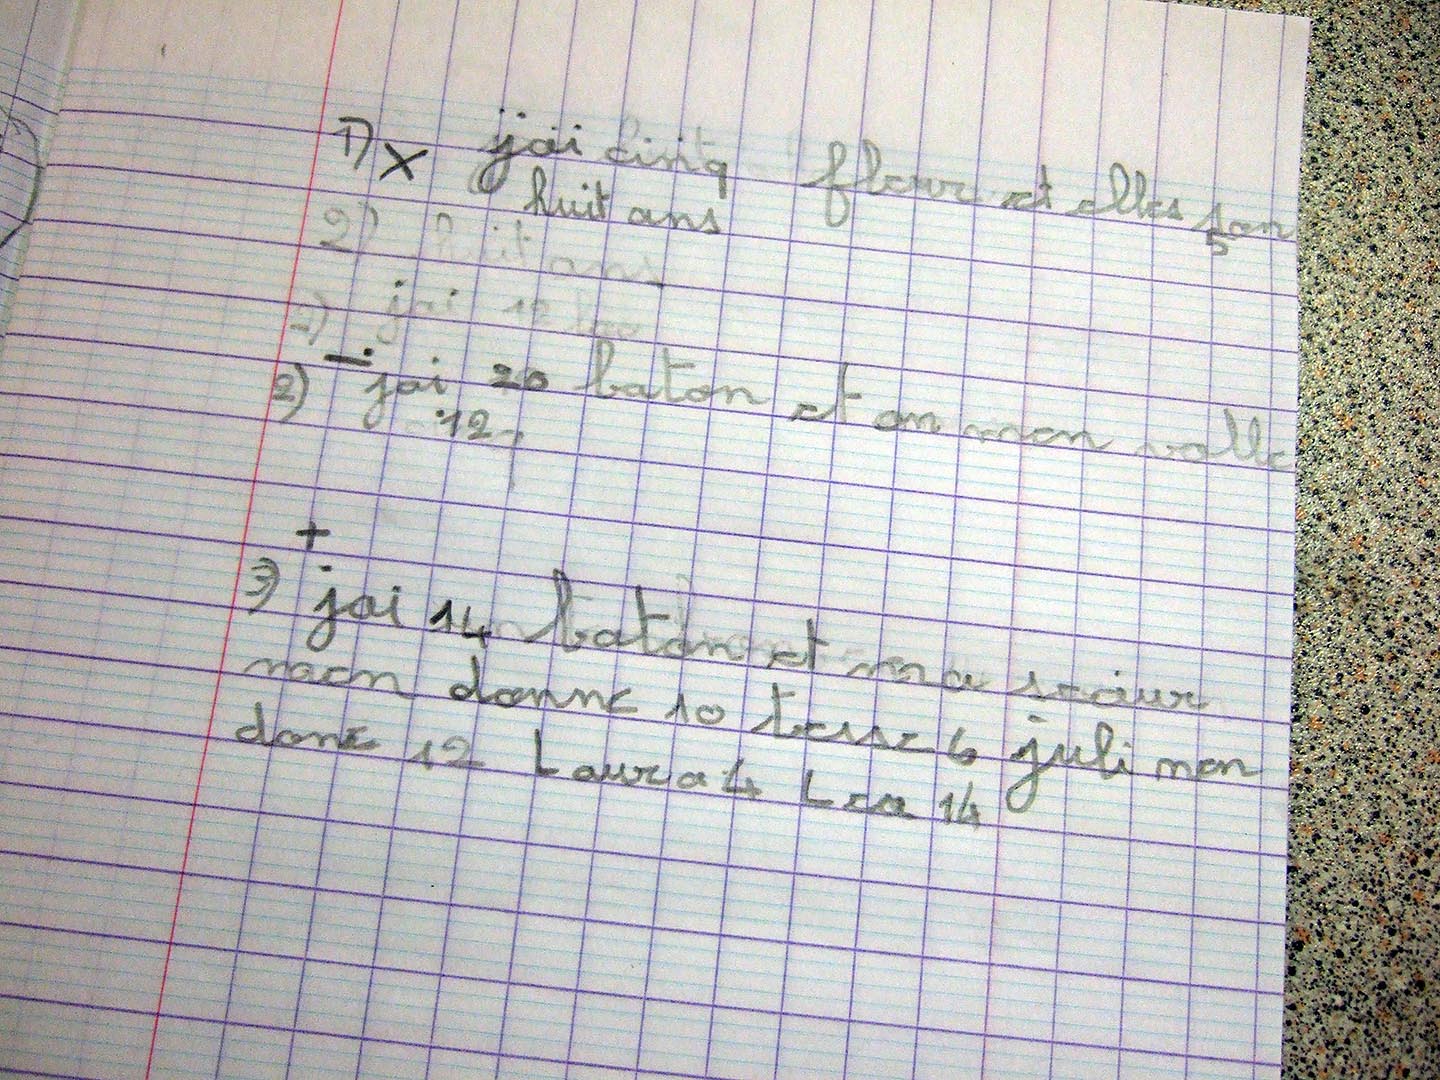 1) X jai cinq fleur et elles son
huit ans
2) huit ans
2) jai 12
−
2) jai 20 baton et on mon volle
12
+
3) jai 14 baton et ma seour
maon donne 10 tesse 6 juli mon
done 12 Laura 4 Lea 14